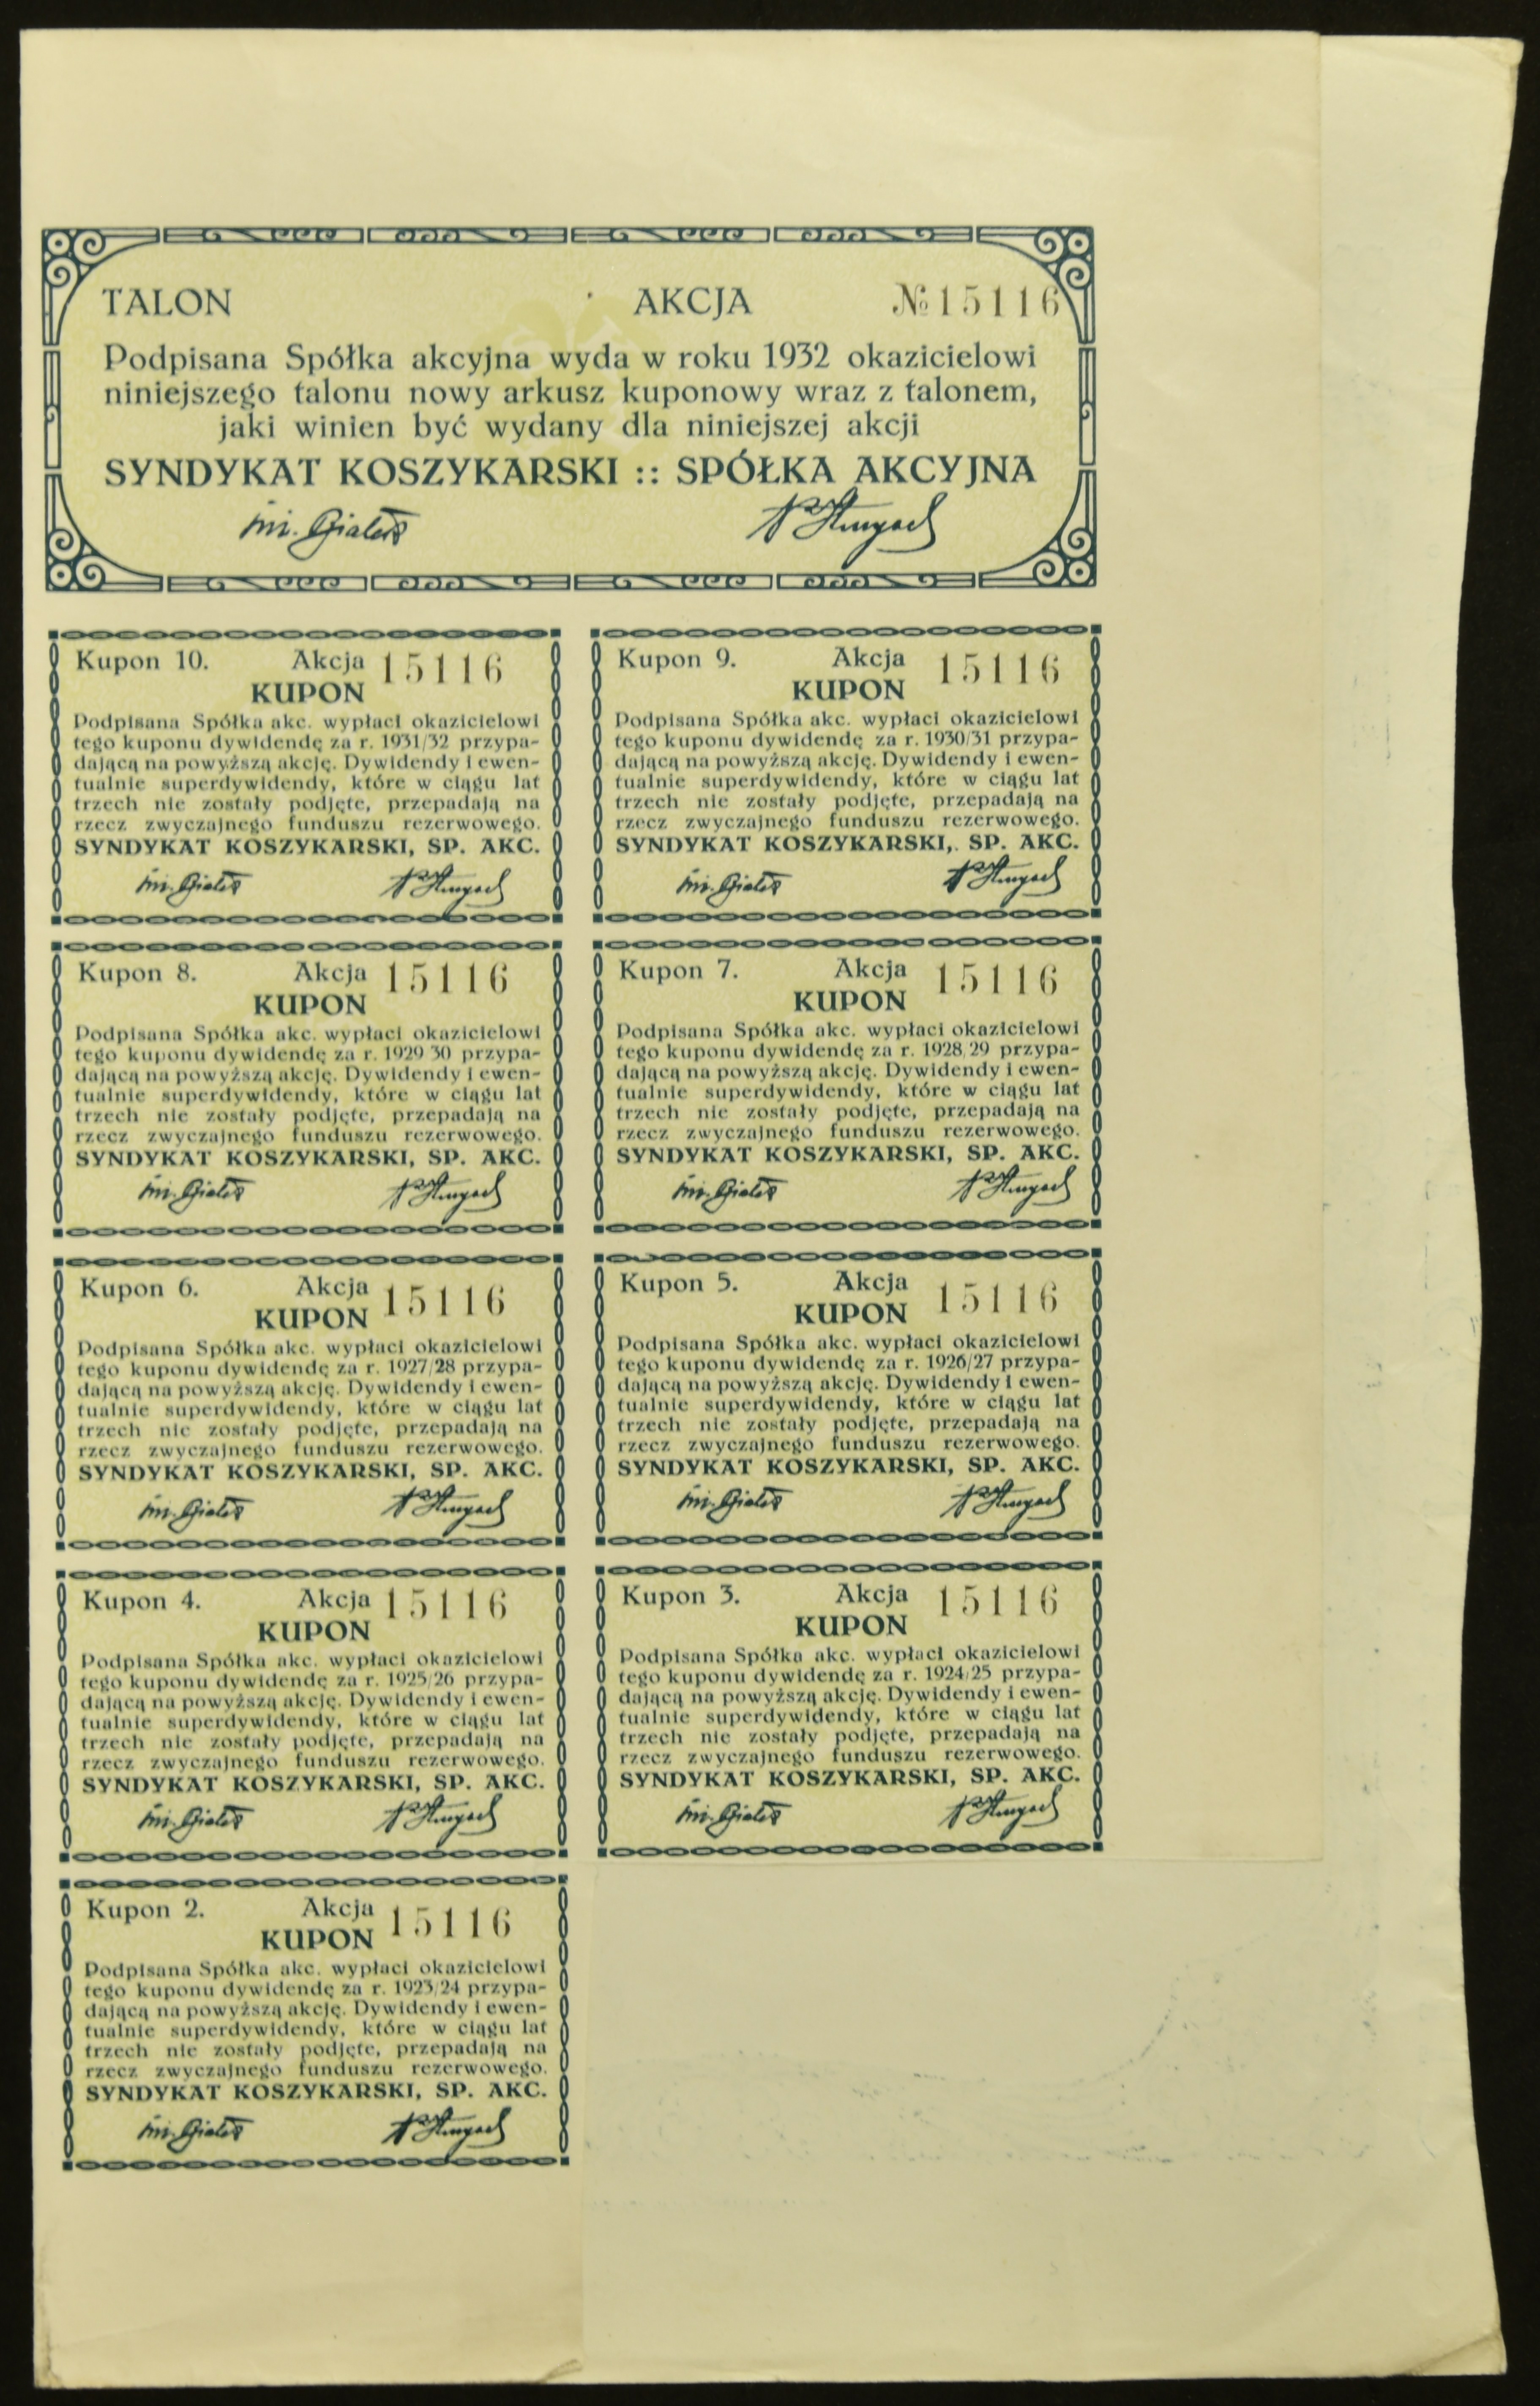 TALON AKCJA №15116
Podpisana Spółka akcyjna wyda w roku 1932 okazicielowi
niniejszego talonu nowy arkusz kuponowy wraz z talonem,
jaki winien być wydany dla niniejszej akcji
SYNDYKAT KOSZYKARSKI :: SPÓŁKA AKCYJNA
Kupon 10. Akcja 15116
KUPON
Podpisana Spółka akc. wypłaci okazicielowi
tego kuponu dywidendę za r. 1931/32 przypa-
dającą na powyższą akcję. Dywidendy i ewen-
tualnie superdywidendy, które w ciągu lat
trzech nie zostały podjęte, przepadają na
rzecz zwyczajnego funduszu rezerwowego.
SYNDYKAT KOSZYKARSKI, SP. AKC.
Kupon 9. Akcja 15116
KUPON
Podpisana Spółka akc. wypłaci okazicielowi
tego kuponu dywidendę za r. 1930/31 przypa-
dającą na powyższą akcję. Dywidendy i ewen-
tualnie superdywidendy, które w ciągu lat
trzech nie zostały podjęte, przepadają na
rzecz zwyczajnego funduszu rezerwowego.
SYNDYKAT KOSZYKARSKI, SP. AKC.
Kupon 8. Akcja 15116
KUPON
Podpisana Spółka akc. wypłaci okazicielowi
tego kuponu dywidendę za r. 1929 30 przypa-
dającą na powyższą akcję. Dywidendy i ewen-
tualnie superdywidendy, które w ciągu lat
trzech nie zostały podjęte, przepadają na
rzecz zwyczajnego funduszu rezerwowego.
SYNDYKAT KOSZYKARSKI, SP. AKC.
Kupon 7. Akcja 15116
KUPON
Podpisana Spółka akc. wypłaci okazicielowi
tego kuponu dywidendę za r. 1928/29 przypa-
dającą na powyższą akcję. Dywidendy i ewen-
tualnie superdywidendy, które w ciągu lat
trzech nie zostały podjęte, przepadają na
rzecz zwyczajnego funduszu rezerwowego.
SYNDYKAT KOSZYKARSKI, SP. AKC.
Kupon 6. Akcja 15116
KUPON
Podpisana Spółka akc. wypłaci okazicielowi
tego kuponu dywidendę za r. 1927/28 przypa-
dającą na powyższą akcję. Dywidendy i ewen-
tualnie superdywidendy, które w ciągu lat
trzech nie zostały podjęte, przepadają na
rzecz zwyczajnego funduszu rezerwowego.
SYNDYKAT KOSZYKARSKI, SP. AKC.
Kupon 5. Akcja 15116
KUPON
Podpisana Spółka akc. wypłaci okazicielowi
tego kuponu dywidendę za r. 1926/27 przypa-
dającą na powyższą akcję. Dywidendy i ewen-
tualnie superdywidendy, które w ciągu lat
trzech nie zostały podjęte, przepadają na
rzecz zwyczajnego funduszu rezerwowego.
SYNDYKAT KOSZYKARSKI, SP. AKC.
Kupon 4. Akcja 15116
KUPON
Podpisana Spółka akc. wypłaci okazicielowi
tego kuponu dywidendę za r. 1925/26 przypa-
dającą na powyższą akcję. Dywidendy i ewen-
tualnie superdywidendy, które w ciągu lat
trzech nie zostały podjęte, przepadają na
rzecz zwyczajnego funduszu rezerwowego.
SYNDYKAT KOSZYKARSKI, SP. AKC.
Kupon 3. Akcja 15116
KUPON
Podpisana Spółka akc. wypłaci okazicielowi
tego kuponu dywidendę za r. 1924/25 przypa-
dającą na powyższą akcję. Dywidendy i ewen-
tualnie superdywidendy, które w ciągu lat
trzech nie zostały podjęte, przepadają na
rzecz zwyczajnego funduszu rezerwowego.
SYNDYKAT KOSZYKARSKI, SP. AKC.
Kupon 2. Akcja 15116
KUPON
Podpisana Spółka akc. wypłaci okazicielowi
tego kuponu dywidendę za r. 1923/24 przypa-
dającą na powyższą akcję. Dywidendy i ewen-
tualnie superdywidendy, które w ciągu lat
trzech nie zostały podjęte, przepadają na
rzecz zwyczajnego funduszu rezerwowego.
SYNDYKAT KOSZYKARSKI, SP. AKC.